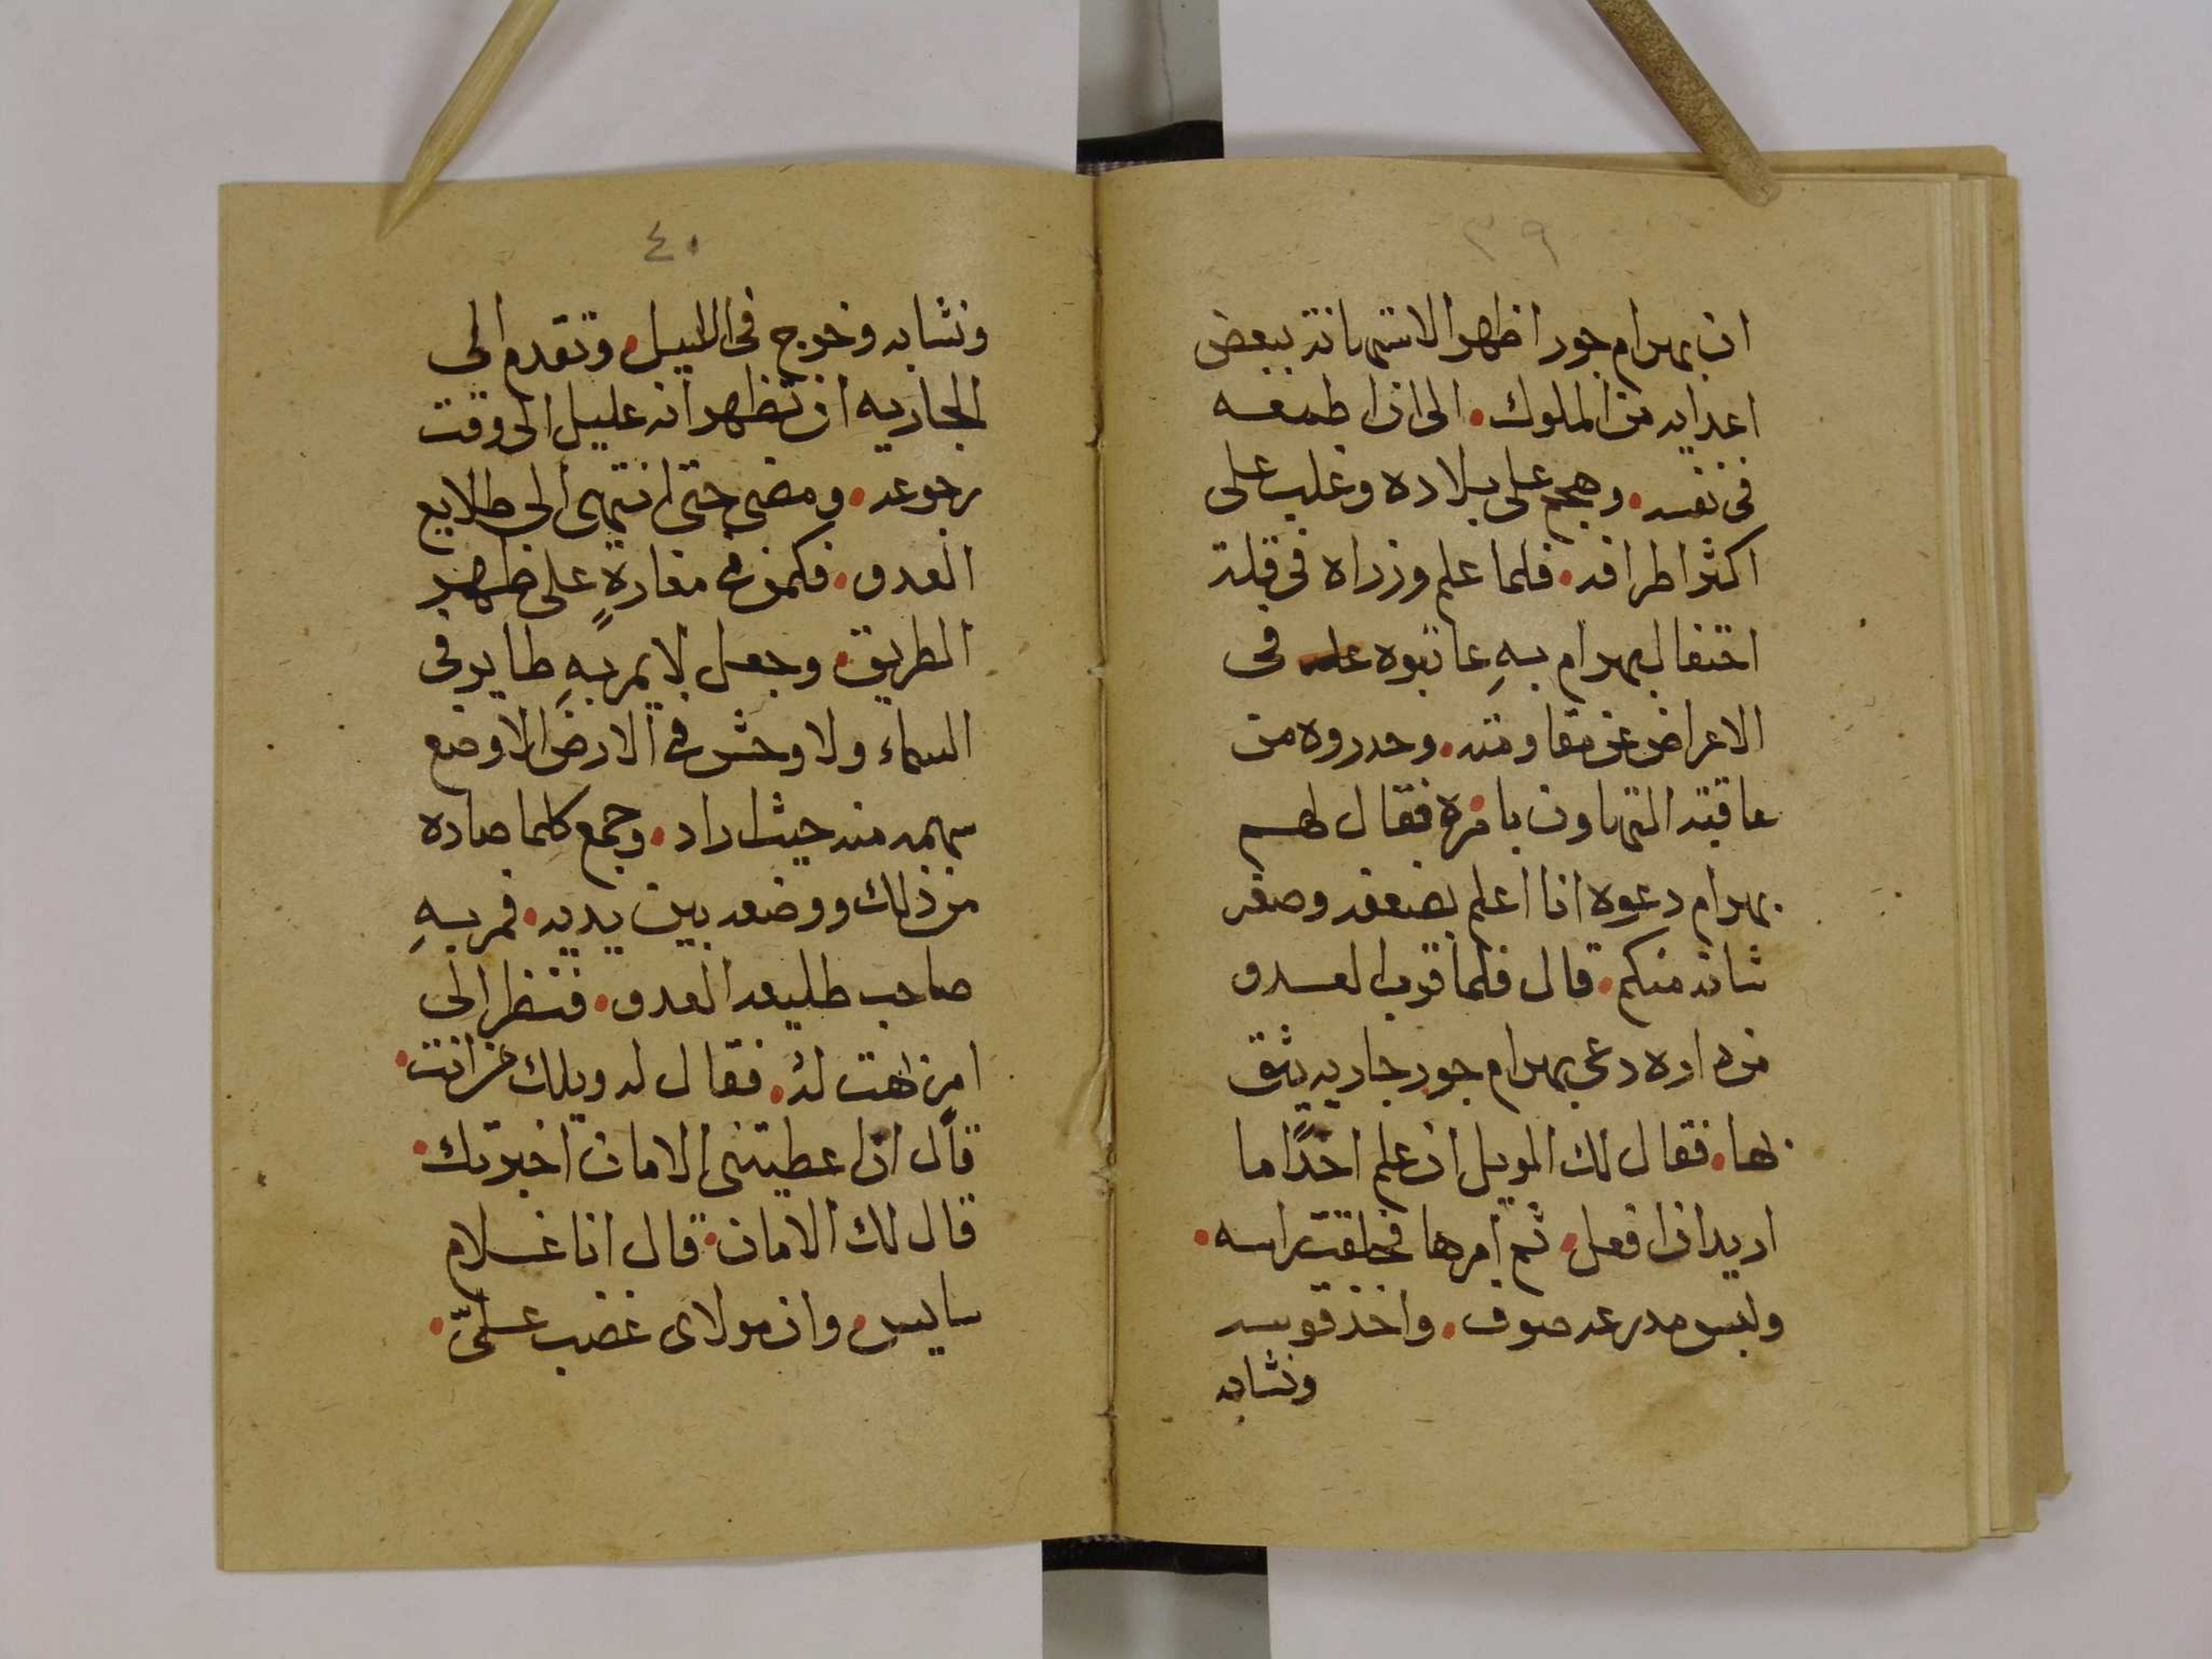 ٣٩
ان بهرام جور اظهر الاستهانة ببعض
اعدايه من الملوك. الى ان اطمعه
في نفسه. وهجم على بلاده وغلب على
اكثر اطرافه. فلما علم وزراه في قلة
احتفال بهرام بهِ عاتبوه في
الاعراض عن مقاومته. وحدروه من
عاقبة التهاون بامره فقال لهم
بهرام دعوه انا اعلم بضعفه وصغر
شانه منكم. قال فلما قرب العدو
من داره دعى بهرام جور جاريه يثق
بها. فقال لك الويل ان علم احدًا ما
اريد ان افعل. ثم امرها فحلقت راسه.
ولبس مدرعه صوف. واخذ قوسه
ونشابه
٤٠
ونشابه وخرج في الليل. وتقدم الى
الجاريه ان تظهر انه عليل الى وقت
رجوعه. ومضى حتى انتهى الى طلايع
العدو. فكمن في مغارةٍ على ظهر
الطريق. وجعل لا يمر بهِ طاير في
السماء ولا وحش في الارض الا وضع
سهمه منه حيث اراد. وجمع كلما صاده
من ذلك ووضعه بين يديه. فمر بهِ
صاحب طليعه العدو. فنظر الى
امرٍ لهت لهُ. فقال له ويلك من انت.
قال ان اعطيتني الامان اخبرتك.
قال لك الامان. قال انا غلام
سايس. وان مولاى غضب علىّ.